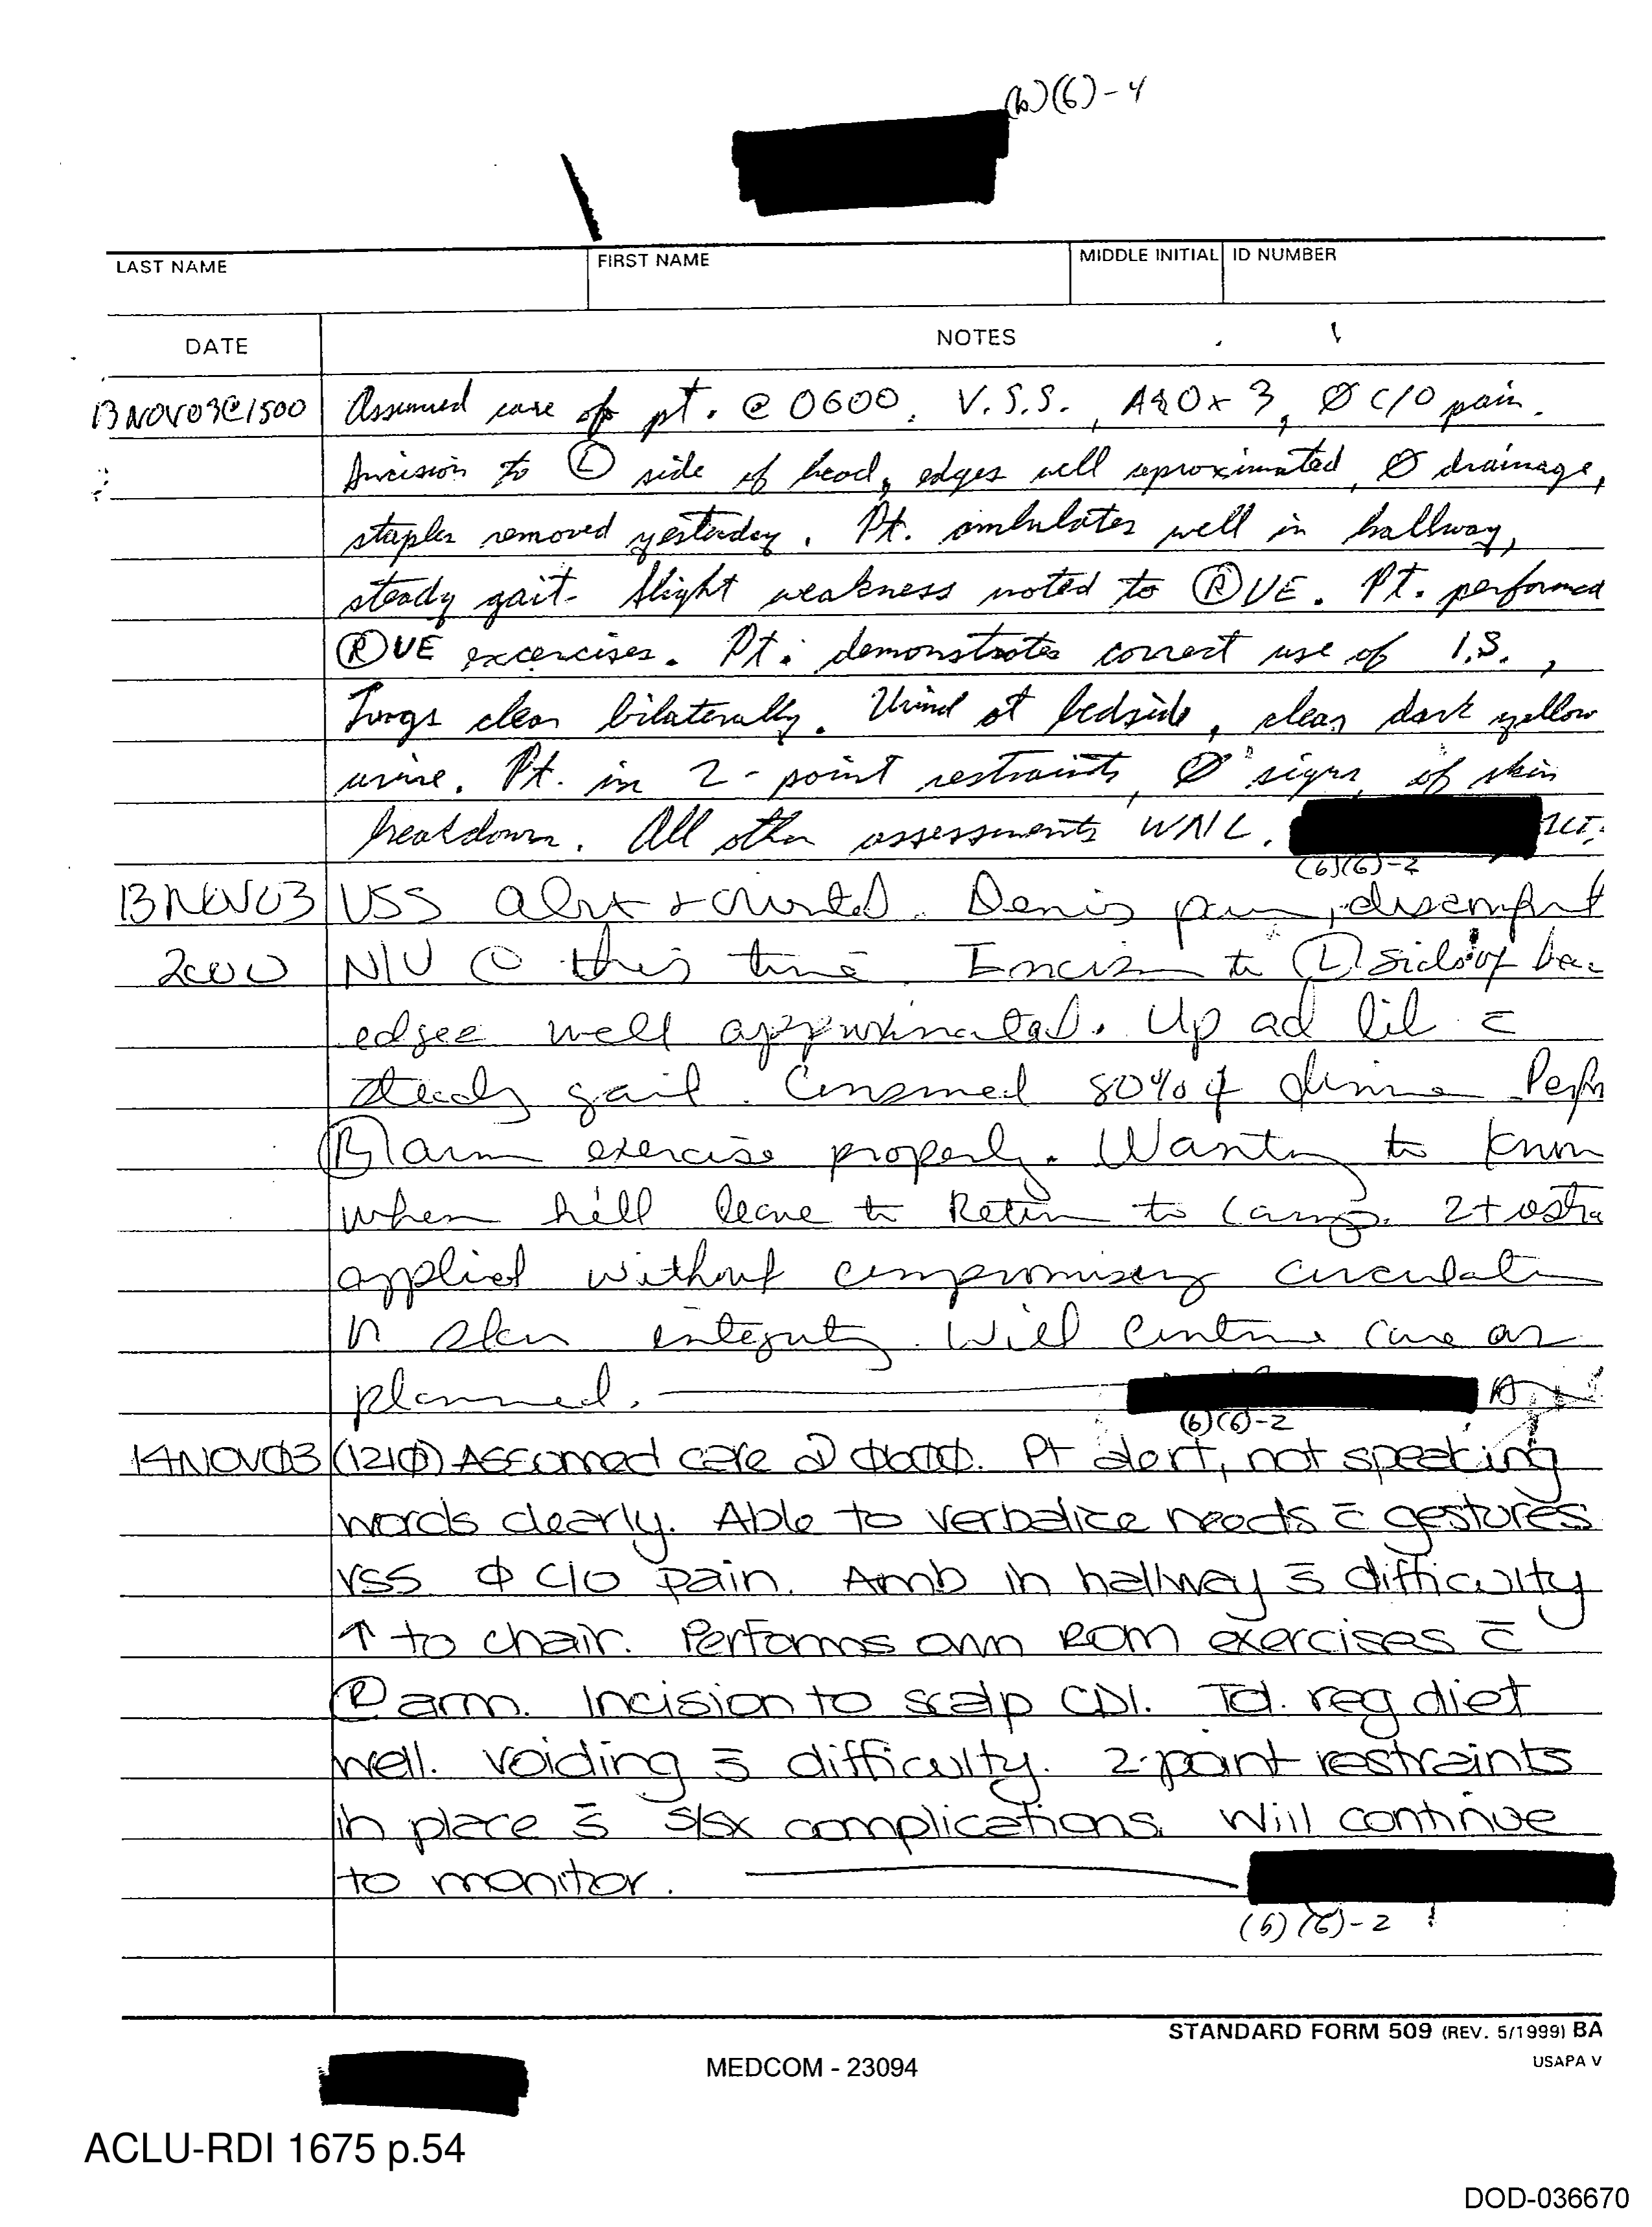 (b)(6)-4
LAST NAME
FIRST NAME
MIDDLE INITIAL
ID NUMBER
DATE
NOTES
13NOV03@1500 Assumed care of pt. @ 0600. V.S.S., A&Ox3, Ø C/O pain.
Incision to Ⓛ side of head, edges well aproximated, Ø drainage,
staples removed yesterday. Pt. ambulates well in hallway,
steady gait. Slight weakness noted to Ⓡ UE. Pt. performed
Ⓡ UE excercises. Pt. demonstrates correct use of I.S.,
Lungs clear bilaterally. Urinal at bedside, clear dark yellow
urine. Pt. in 2-point restraints, Ø signs of skin
breakdown. All other assessments WNL.
(b)(6)-2
13NOV03 VSS alert + oriented. Denies pain, discomfort
2000 N/V @ this time. Incision to Ⓛ side of
edges well approximated. Up ad lib c̄
steady gait. Consumed 80% of dinner
Ⓡ arm exercise properly. Wanting to know
when he'll leave to Return to Camp. 2
applied without compromising
skin integrity. Will continue care as
planned.
(b)(6)-2
14NOV03 (1210) Assumed care @ 0600. Pt alert, not speaking
words clearly. Able to verbalize needs c̄ gestures
VSS Ø C/O pain. Amb in hallway s̄ difficulty
↑ to chair. Performs own ROM exercises c̄
Ⓡ arm. Incision to scalp CDI. Tol. reg diet
well. Voiding s̄ difficulty. 2-point restraints
in place s̄ s/sx complications. Will continue
to monitor.
(b)(6)-2
STANDARD FORM 509 (REV. 5/1999) BA
USAPA V
MEDCOM - 23094
ACLU-RDI 1675 p.54
DOD-036670